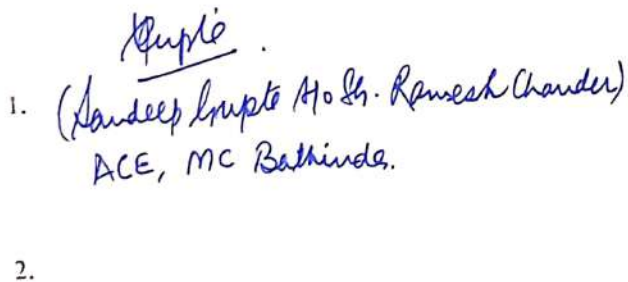 Gupta
1. (Sandeep Gupta S/o Sh. Ramesh Chander)
ACE, MC Bathinda.
2.